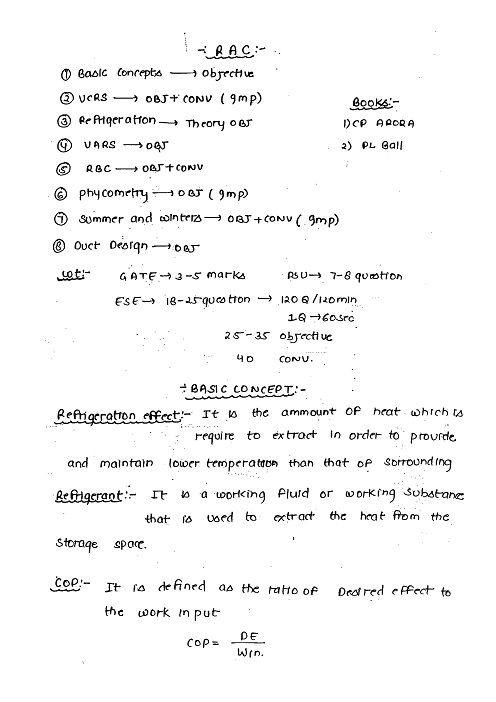 -: RAC:-
① Basic Concepts → Objective
② VCRS → OBJ + CONV (gmp)
③ Refrigeration → Theory OBJ
④ VARS → OBJ
⑤ RBC → OBJ + CONV
⑥ phycometry → OBJ (gmp)
⑦ Summer and winters → OBJ + CONV (gmp)
⑧ Duct Design → OBJ
Books:-
1) CP ARORA
2) PL Ball
GATE → 3-5 marks PSU → 7-8 question
ESE → 18-25 question → 120Q/120min
1Q → 60sec
25-35 objective
40 CONV.
÷ BASIC CONCEPT:-
Refrigeration effect:- It is the ammount of heat which is
require to extract in order to provide
and maintain lower temperation than that of sorrounding
Refrigerant:- It is a working fluid or working Substane
that is used to extract the heat from the
storage space.
COP:- It is defined as the ratio of Desired effect to
the work input
COP = DE
Win.